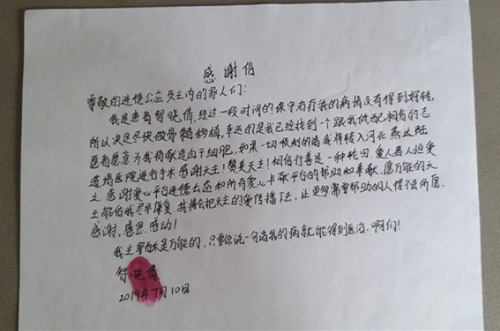 感谢信
尊敬的进德公益及主内的家人们:
我是患者智晓倩,经过一段时间的保守治疗我的病情没有得到好转,
所以决定尽快做骨髓移植,幸运的是我已经找到一个跟我低配相合的志
愿者愿意为我捐献造血干细胞,如果一切顺利的话我将转入河北燕达陆
道培医院进行手术感谢天主!赞美天主!相信行善是一种轮回,爱人再人恒爱
之 感谢爱心平台进德公益和所有爱心卡献平台的帮助和奉献,愿万能的天
主能佑我尽早康复 我将会把天主的爱传播下去,让更多需要帮助的人得偿所愿
感谢,感恩,感动!
我主耶稣是万能的,只要你说一句话我的病就能得到医治,阿们!
智晓倩
2019年7月10日